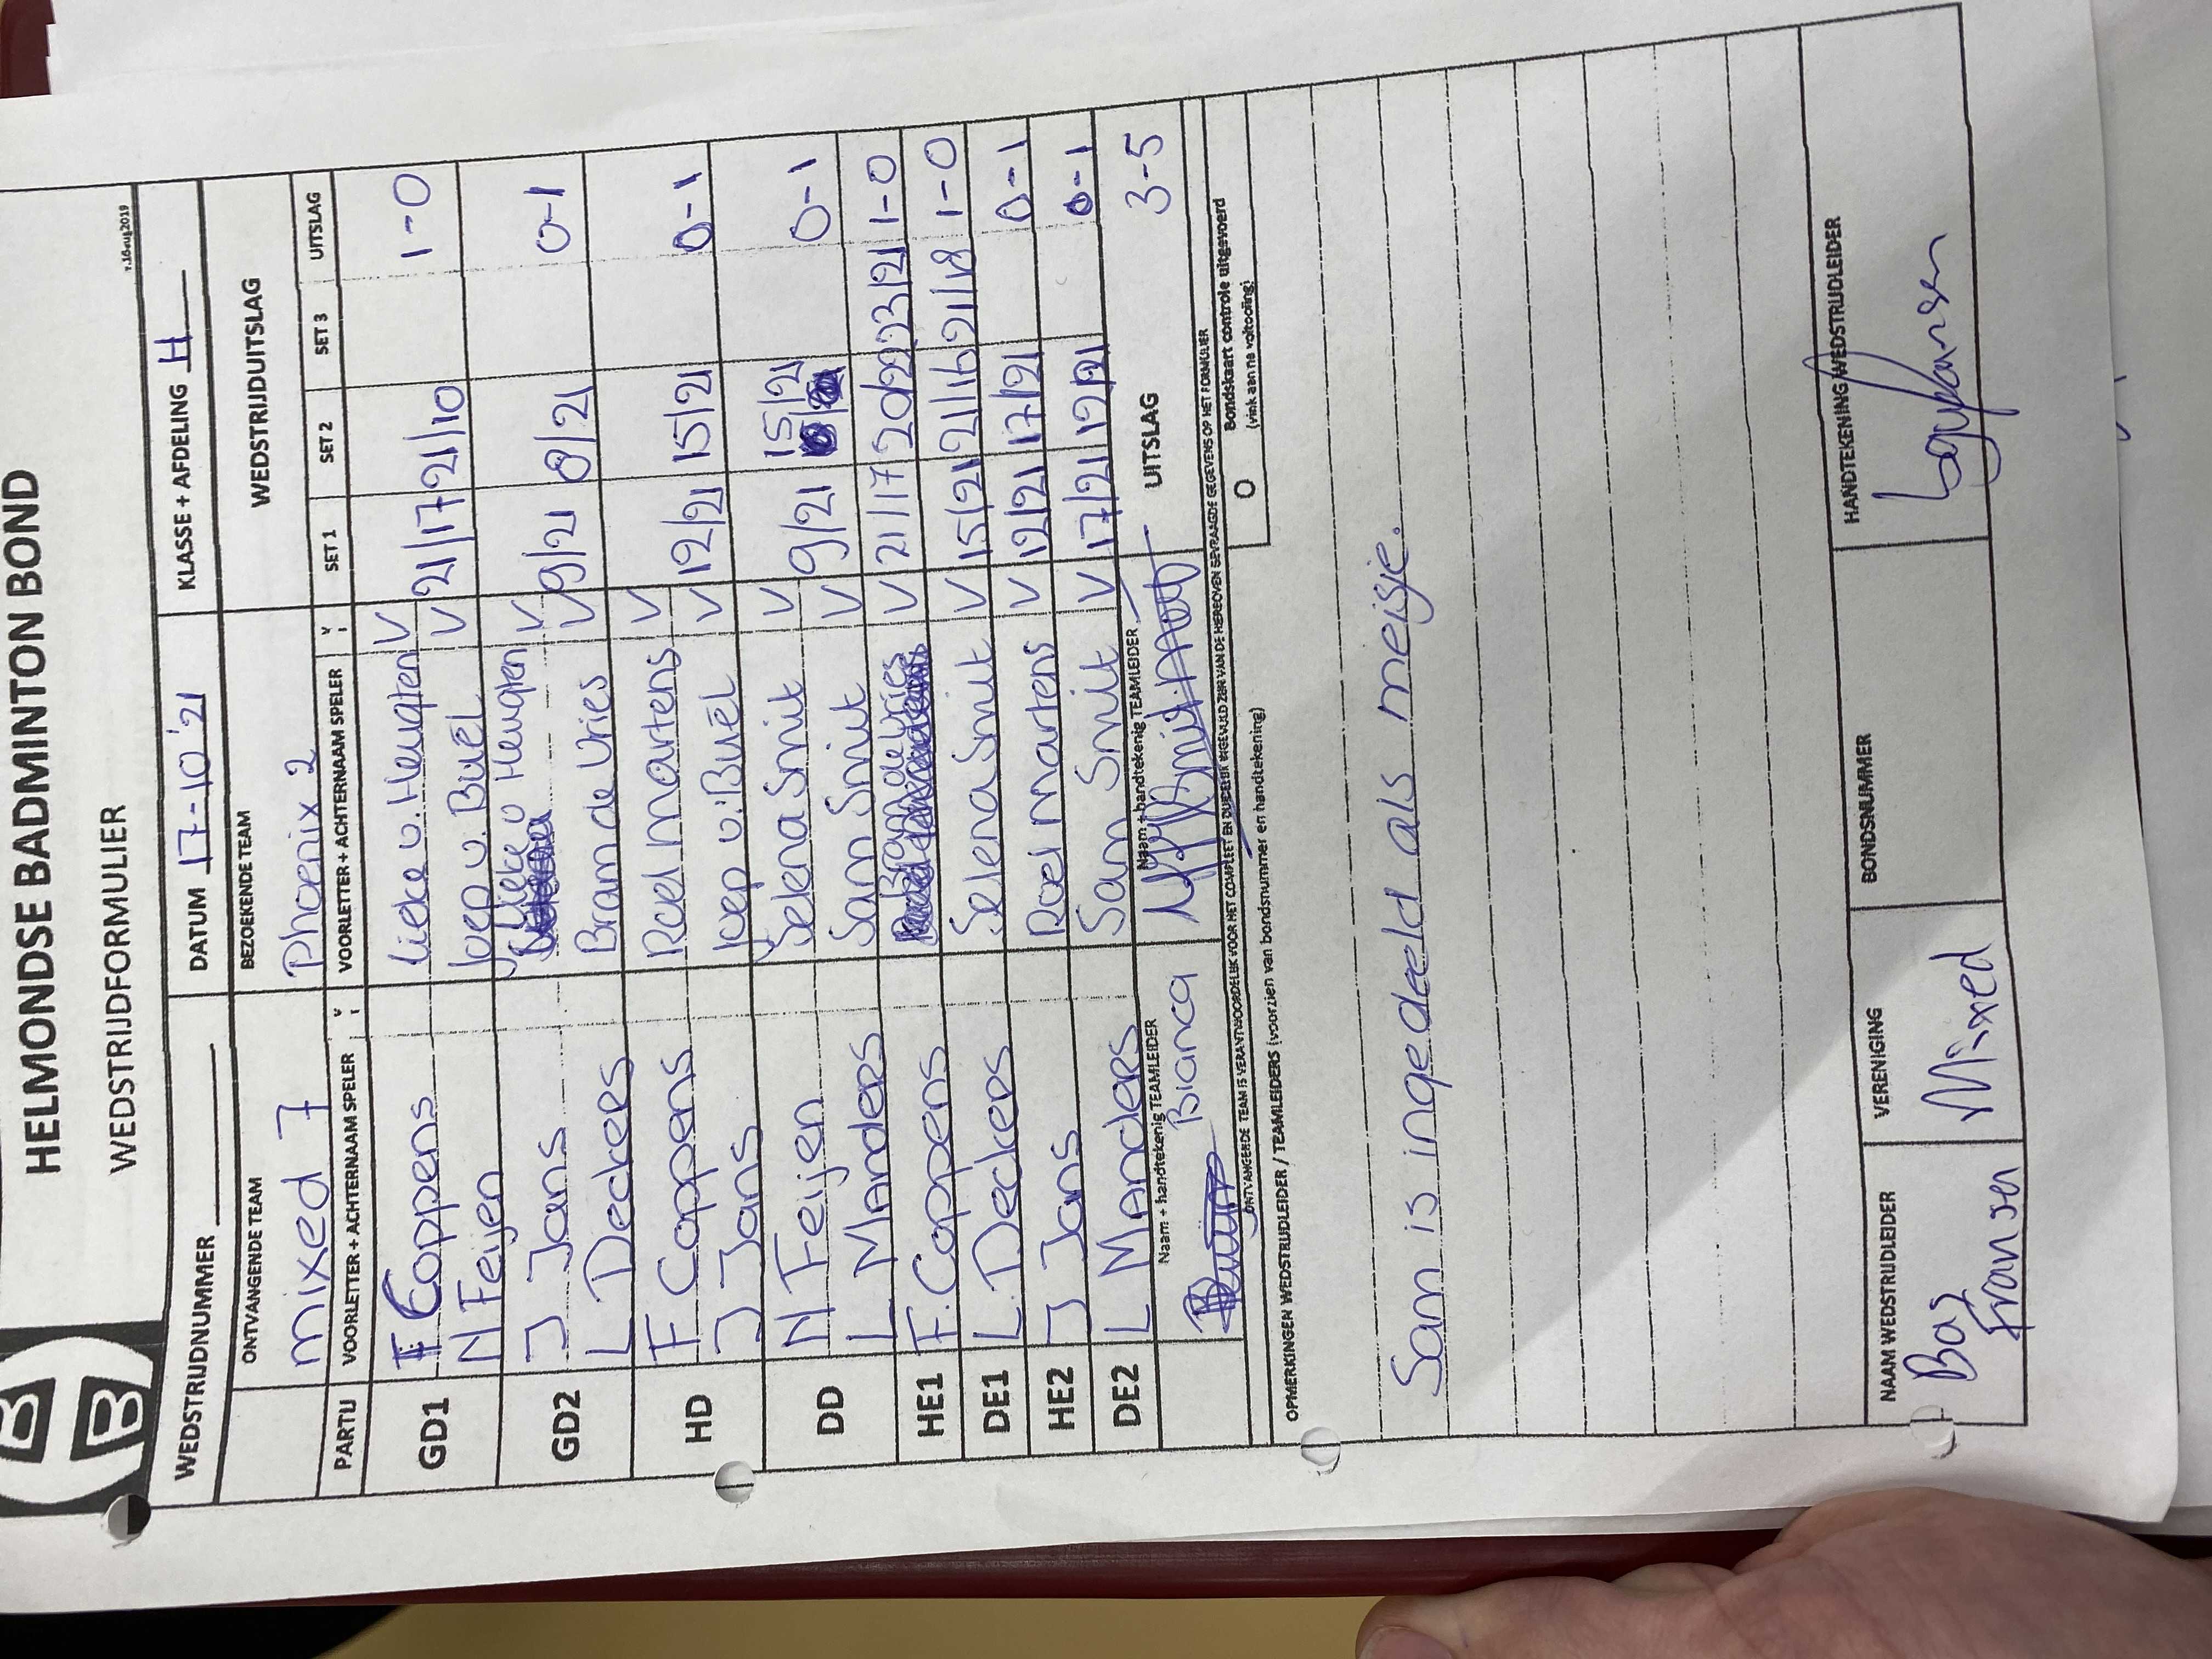 HELMONDSE BADMINTON BOND
WEDSTRIJDFORMULIER
v.16aug2019
WEDSTRIJDNUMMER DATUM 17-10'21 KLASSE + AFDELING H
ONTVANGENDE TEAM BEZOEKENDE TEAM WEDSTRIJDUITSLAG
mixed 7 Phoenix 2
PARTIJ VOORLETTER + ACHTERNAAM SPELER V VOORLETTER + ACHTERNAAM SPELER V SET 1 SET 2 SET 3 UITSLAG
GD1 F Coppens Lieke v. Heugten V 21/17 21/10 1-0
N Feijen Joep v. Buël V
GD2 J Jans Lieke v Heugten V 9/21 8/21 0-1
L Deckers Bram de Vries V
HD F Coppens Roel Martens V 12/21 15/21 0-1
J Jans Joep v. Buël V
DD N Feijen Selena Smit V 9/21 15/21 0-1
L Manders Sam Smit V
HE1 F. Coppens Bram de Vries V 21/17 20/22 23/21 1-0
DE1 L. Deckers Selena Smit V 15/21 21/16 21/18 1-0
HE2 J Jans Roel Martens V 12/21 17/21 0-1
DE2 L Manders Sam Smit V 17/21 19/21 0-1
Naam + handtekenig TEAMLEIDER Naam + handtekenig TEAMLEIDER UITSLAG 3-5
Bianca
ONTVANGENDE TEAM IS VERANTWOORDELIJK VOOR HET COMPLEET EN DUIDELIJK INGEVULD ZIJN VAN DE HIERBOVEN GEVRAAGDE GEGEVENS OP HET FORMULIER
O Bondskaart controle uitgevoerd
(vink aan na voltooiing)
OPMERKINGEN WEDSTRIJDLEIDER / TEAMLEIDERS (voorzien van bondsnummer en handtekening)
Sam is ingedeeld als meisje.
NAAM WEDSTRIJDLEIDER VERENIGING BONDSNUMMER HANDTEKENING WEDSTRIJDLEIDER
Bas Mixed
Fransen